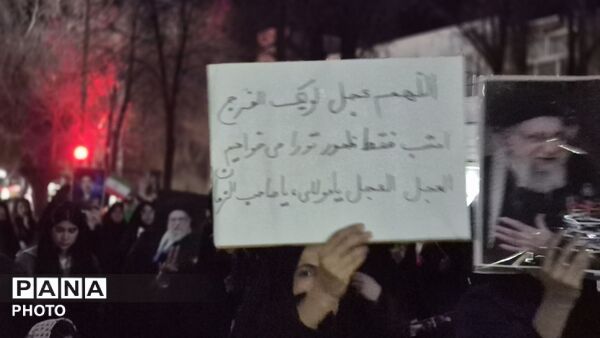 اللهم عجل لولیک الفرج
امشب فقط ظهور تو را می خواهیم
العجل العجل یا مولای یا صاحب الزمان
PANA
PHOTO